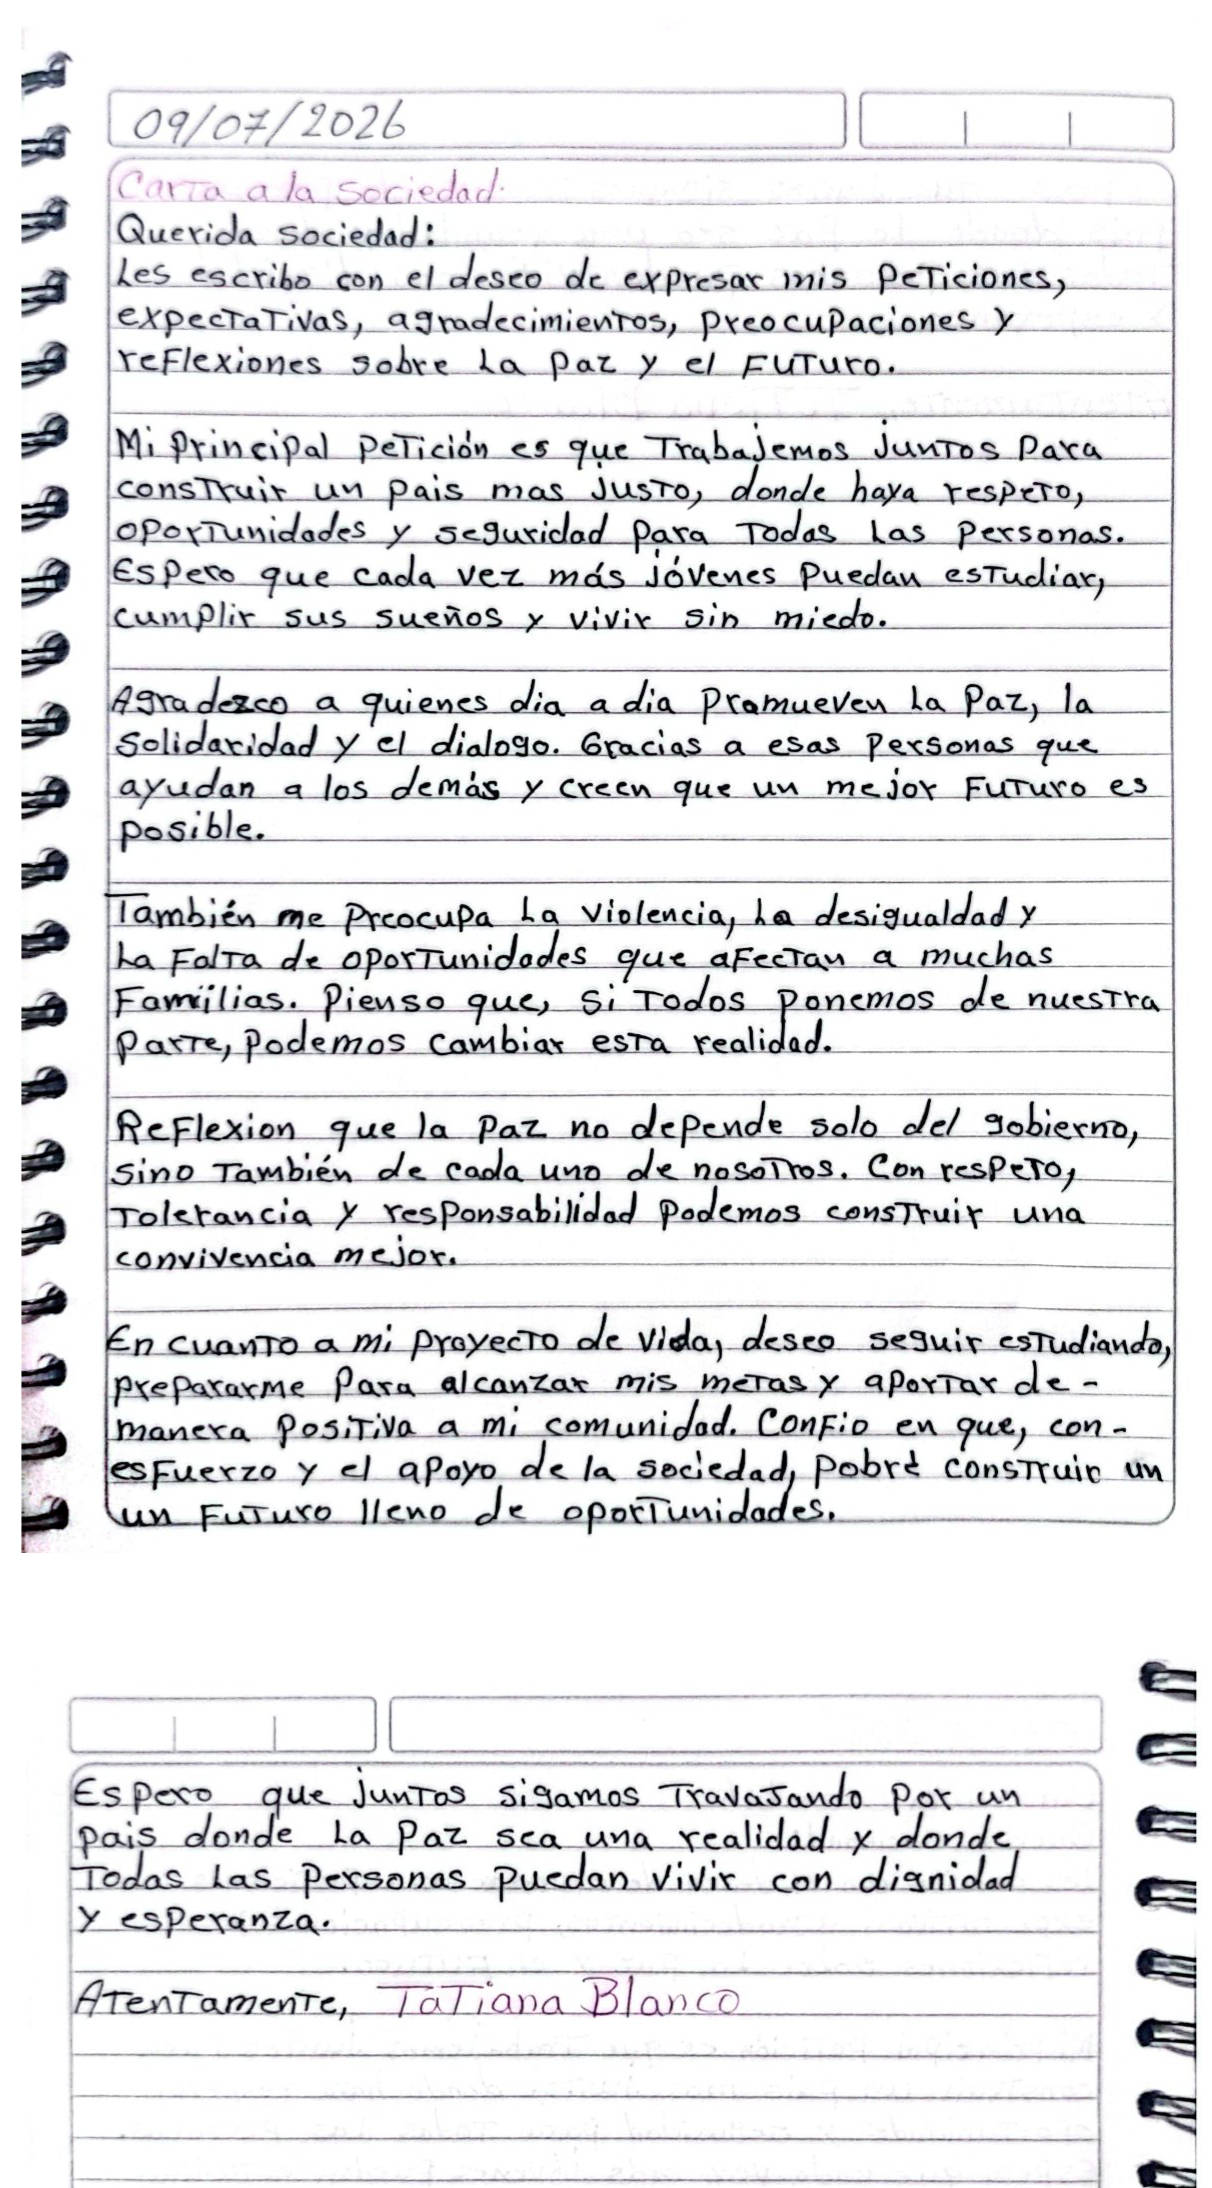 09/07/2026
Carta a la sociedad.
Querida sociedad:
Les escribo con el deseo de expresar mis peticiones,
expectativas, agradecimientos, preocupaciones y
reflexiones sobre La paz y el Futuro.
Mi principal petición es que Trabajemos juntos para
construir un pais mas justo, donde haya respeto,
oportunidades y seguridad para Todas Las personas.
Espero que cada vez más jóvenes puedan estudiar,
cumplir sus sueños y vivir sin miedo.
Agradezco a quienes dia a dia promueven La paz, la
solidaridad y el dialogo. Gracias a esas personas que
ayudan a los demás y creen que un mejor Futuro es
posible.
También me preocupa La violencia, La desigualdad y
La Falta de oportunidades que afectan a muchas
Familias. Pienso que, si Todos ponemos de nuestra
parte, podemos cambiar esta realidad.
Reflexion que la paz no depende solo del gobierno,
sino También de cada uno de nosotros. Con respeto,
Tolerancia y responsabilidad podemos construir una
convivencia mejor.
En cuanto a mi proyecto de vida, deseo seguir estudiando,
prepararme para alcanzar mis metas y aportar de-
manera positiva a mi comunidad. Confio en que, con-
esfuerzo y el apoyo de la sociedad, pobré construir un
un Futuro lleno de oportunidades.
Espero que juntos sigamos Travajando por un
pais donde La paz sea una realidad y donde
Todas Las personas puedan vivir con dignidad
y esperanza.
Atentamente, Tatiana Blanco